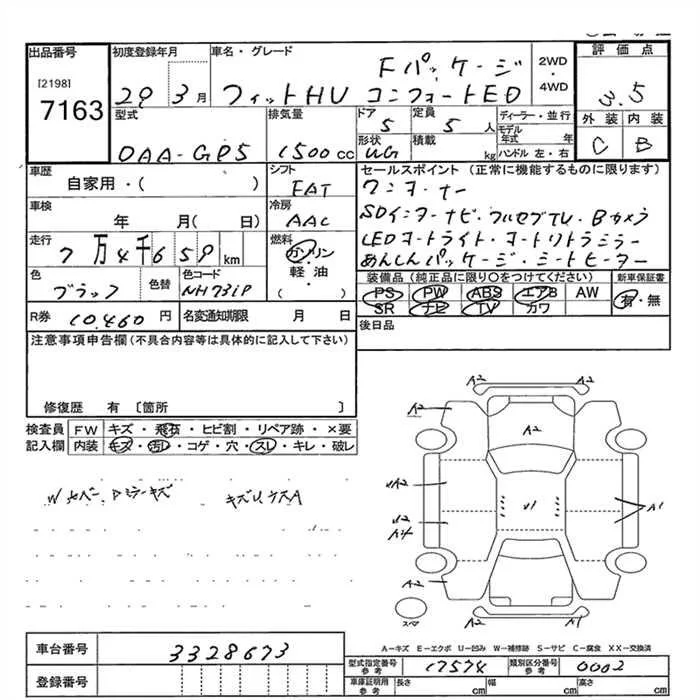 出品番号
[2198]
7163
初度登録年月
29 3月
車名・グレード
Fパッケージ
フィットHV コンフォートED
2WD
・
4WD
評価点
3.5
外装 内装
C B
型式
DAA-GP5
排気量
1500 cc
ドア
5
定員
5 人
形状
WG
積載
kg
ディーラー・並行
モデル年式 年
ハンドル 左・右
車歴
自家用・( )
シフト
FAT
車検
年 月( 日)
冷房
AAC
走行
7万4千659 km
燃料
ガソリン
軽油
( ・ )
色
ブラック
色替
色コード
NH731P
R券 10,460 円
名変通知期限 月 日
セールスポイント (正常に機能するものに限ります)
ワンオーナー
SDインターナビ・フルセグTV・Bカメラ
LEDオートライト・オートリトラミラー
あんしんパッケージ・シートヒーター
装備品(純正品に限り○をつけてください)
新車保証書
PS PW ABS エアB AW
SR ナビ TV カワ
有・無
後日品
注意事項申告欄(不具合内容等は具体的に記入して下さい)
修復歴 有 〔箇所 〕
検査員記入欄
FW キズ・飛石・ヒビ割・リペア跡・×要
内装 キズ・汚レ・コゲ・穴・スレ・キレ・破レ
キズU,ケスA
A2 A2
A2
A2
A2
A2
A1
A2
A1
スペア
A-キズ E-エクボ U-凹み W-補修跡 S-サビ C-腐食 XX-交換済
車台番号
3328673
登録番号
型式指定番号
参考
17574
類別区分番号
参考
0002
車庫証明用
参考
長さ cm
幅 cm
高さ cm